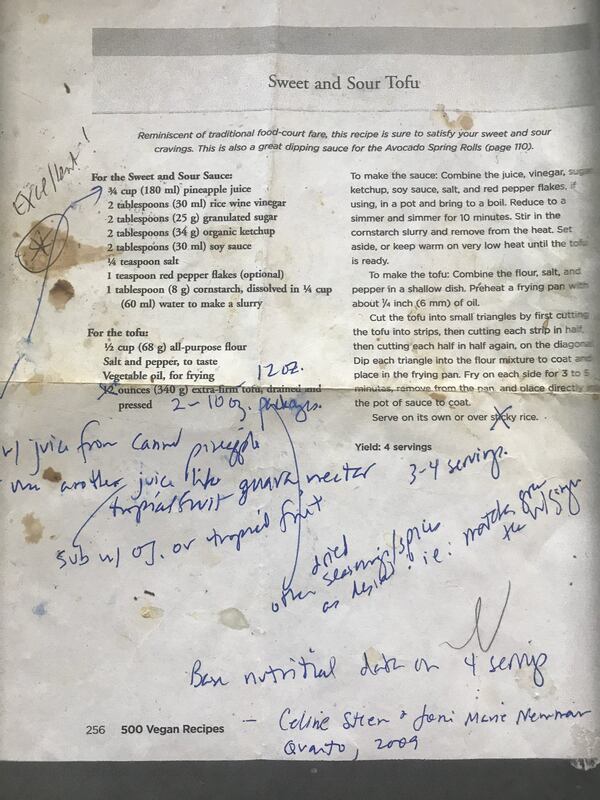 Sweet and Sour Tofu
Reminiscent of traditional food-court fare, this recipe is sure to satisfy your sweet and sour
cravings. This is also a great dipping sauce for the Avocado Spring Rolls (page 110).
Excellent!
For the Sweet and Sour Sauce:
¾ cup (180 ml) pineapple juice
2 tablespoons (30 ml) rice wine vinegar
2 tablespoons (25 g) granulated sugar
2 tablespoons (34 g) organic ketchup
2 tablespoons (30 ml) soy sauce
¼ teaspoon salt
1 teaspoon red pepper flakes (optional)
1 tablespoon (8 g) cornstarch, dissolved in ¼ cup
(60 ml) water to make a slurry
For the tofu:
½ cup (68 g) all-purpose flour
Salt and pepper, to taste
Vegetable oil, for frying
12 oz.
12 ounces (340 g) extra-firm tofu, drained and
pressed
2-10 oz. packages.
w/ juice from canned pineapple
use another juice like guava nectar
tropical fruit
sub w/ OJ. or tropical fruit
To make the sauce: Combine the juice, vinegar, sugar
ketchup, soy sauce, salt, and red pepper flakes, if
using, in a pot and bring to a boil. Reduce to a
simmer and simmer for 10 minutes. Stir in the
cornstarch slurry and remove from the heat. Set
aside, or keep warm on very low heat until the tofu
is ready.
To make the tofu: Combine the flour, salt, and
pepper in a shallow dish. Preheat a frying pan with
about ¼ inch (6 mm) of oil.
Cut the tofu into small triangles by first cutting
the tofu into strips, then cutting each strip in half,
then cutting each half in half again, on the diagonal
Dip each triangle into the flour mixture to coat and
place in the frying pan. Fry on each side for 3 to 5
minutes, remove from the pan, and place directly in
the pot of sauce to coat.
Serve on its own or over sticky rice.
Yield: 4 servings
3-4 servings.
dried
other seasonings/spices
as desired. ie: matcha green
tea
Base nutritial data on 4 servings
- Celine Steen & Joni Marie Newman
Quarto, 2009
256 500 Vegan Recipes